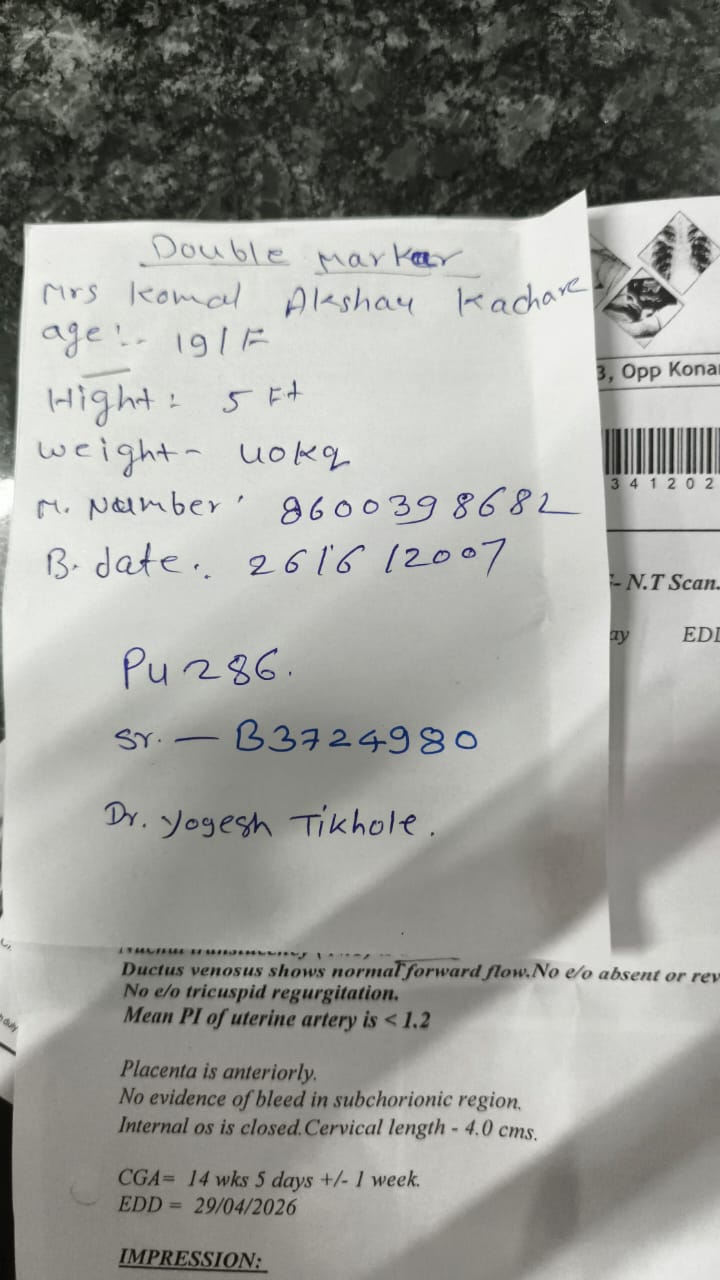 Double Marker
Mrs Komal Akshay Kachare
age :- 19/F
Hight : 5 Ft
weight - 40kg
M. Number : 8600398682
B. date :. 26/6/2007
Pu 286.
Sr. — B3724980
Dr. Yogesh Tikhole.
3, Opp Kona
3 4 1 2 0 2
- N.T Scan.
ay EDD
Ductus venosus shows normal forward flow.No e/o absent or rev
No e/o tricuspid regurgitation.
Mean PI of uterine artery is < 1.2
Placenta is anteriorly.
No evidence of bleed in subchorionic region.
Internal os is closed.Cervical length - 4.0 cms.
CGA= 14 wks 5 days +/- 1 week.
EDD = 29/04/2026
IMPRESSION: